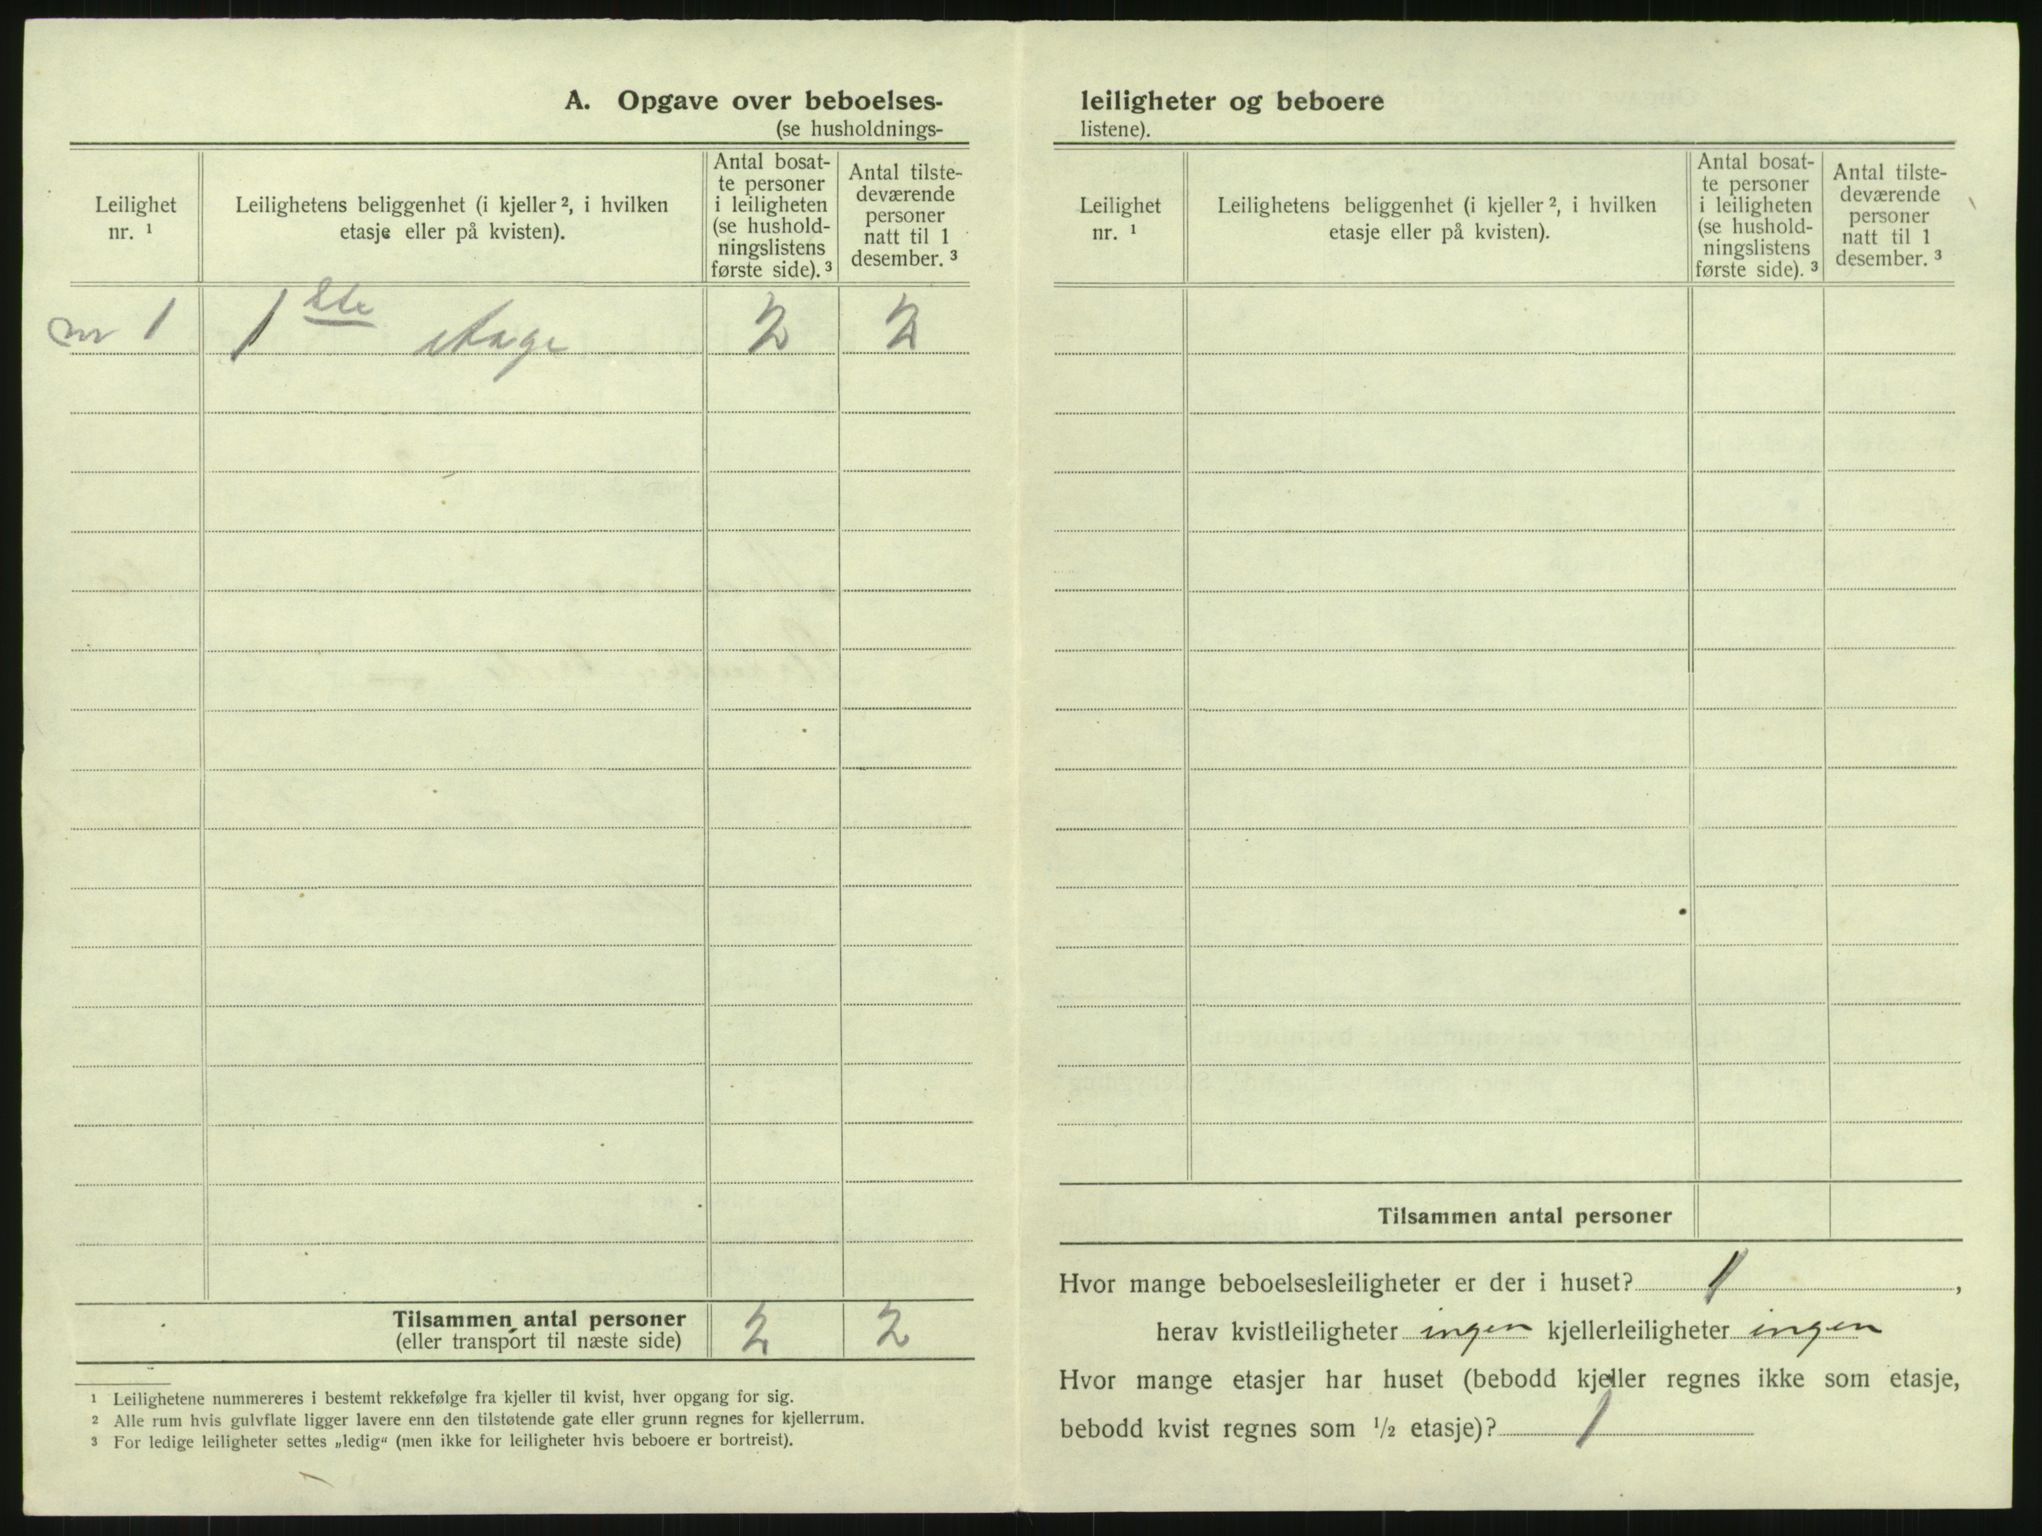 A. Opgave over beboelses-
(se husholdnings-
Leilighet
nr. 1
Leilighetens beliggenhet (i kjeller 2, i hvilken
etasje eller på kvisten).
Antal bosat-
te personer
i leiligheten
(se hushold-
ningslistens
første side). 3
Antal tilste-
deværende
personer
natt til 1
desember. 3
nr 1 1ste etage 2 2
Tilsammen antal personer 2 2
(eller transport til næste side)
1 Leilighetene nummereres i bestemt rekkefølge fra kjeller til kvist, hver opgang for sig.
2 Alle rum hvis gulvflate ligger lavere enn den tilstøtende gate eller grunn regnes for kjellerrum.
3 For ledige leiligheter settes „ledig“ (men ikke for leiligheter hvis beboere er bortreist).
leiligheter og beboere
listene).
Leilighet
nr. 1
Leilighetens beliggenhet (i kjeller 2, i hvilken
etasje eller på kvisten).
Antal bosat-
te personer
i leiligheten
(se hushold-
ningslistens
første side). 3
Antal tilste-
deværende
personer
natt til 1
desember. 3
Tilsammen antal personer
Hvor mange beboelsesleiligheter er der i huset? 1,
herav kvistleiligheter ingen kjellerleiligheter ingen
Hvor mange etasjer har huset (bebodd kjeller regnes ikke som etasje,
bebodd kvist regnes som 1/2 etasje)? 1